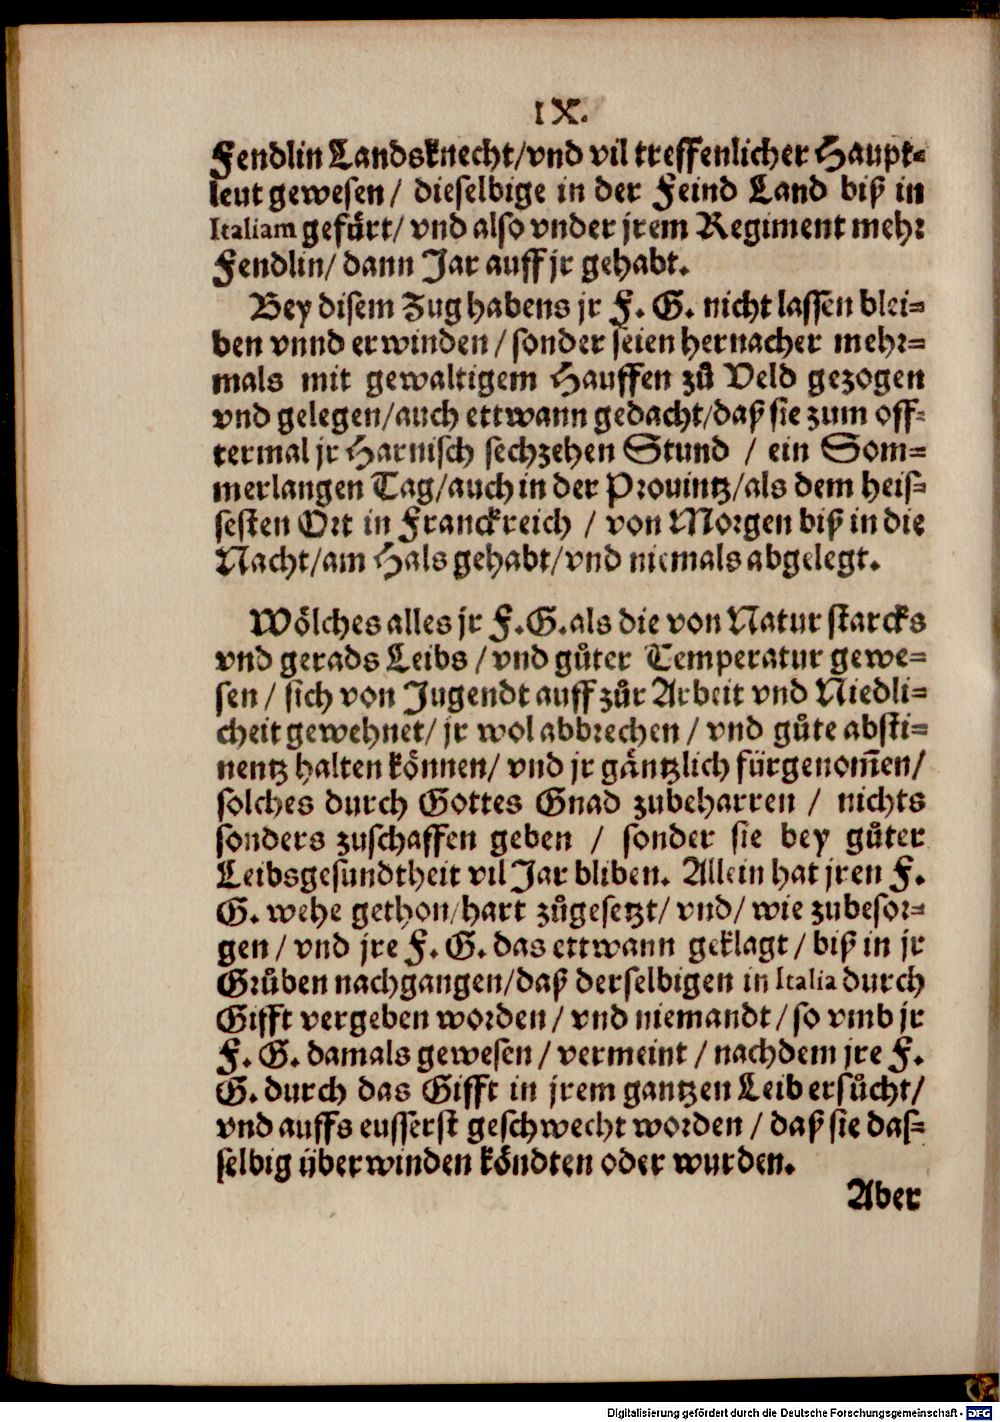 IX.
Fendlin Landsknecht/vnd vil treffenlicher Haupt-
leut gewesen/ dieselbige in der Feind Land biß in
Italiam gefürt/ vnd also vnder jrem Regiment mehr
Fendlin/ dann Jar auff jr gehabt.
Bey disem Zug habens jr F. G. nicht lassen blei-
ben vnnd erwinden/ sonder seien hernacher mehr-
mals mit gewaltigem Hauffen zů Veld gezogen
vnd gelegen/auch ettwann gedacht/daß sie zum off-
termal jr Harnisch sechzehen Stund / ein Som-
merlangen Tag/auch in der Prouintz/als dem heis-
sesten Ort in Franckreich / von Morgen biß in die
Nacht/am Hals gehabt/vnd niemals abgelegt.
Wölches alles jr F.G.als die von Natur starcks
vnd gerads Leibs /vnd gůter Temperatur gewe-
sen / sich von Jugendt auff zůr Arbeit vnd Niedli-
cheit gewehnet/ jr wol abbrechen / vnd gůte absti-
nentz halten können/ vnd jr gäntzlich fürgenom̃en/
solches durch Gottes Gnad zubeharren / nichts
sonders zuschaffen geben / sonder sie bey gůter
Leibsgesundtheit vil Jar bliben. Allein hat jren F.
G. wehe gethon/hart zůgesetzt/ vnd/ wie zubesor-
gen / vnd jre F. G. das ettwann geklagt / biß in jr
Grůben nachgangen/daß derselbigen in Italia durch
Gifft vergeben worden / vnd niemandt / so vmb jr
F. G. damals gewesen / vermeint / nachdem jre F.
G. durch das Gifft in jrem gantzen Leib ersůcht/
vnd auffs eusserst geschwecht worden / daß sie das-
selbig überwinden köndten oder wurden.
Aber
Digitalisierung gefördert durch die Deutsche Forschungsgemeinschaft - DFG